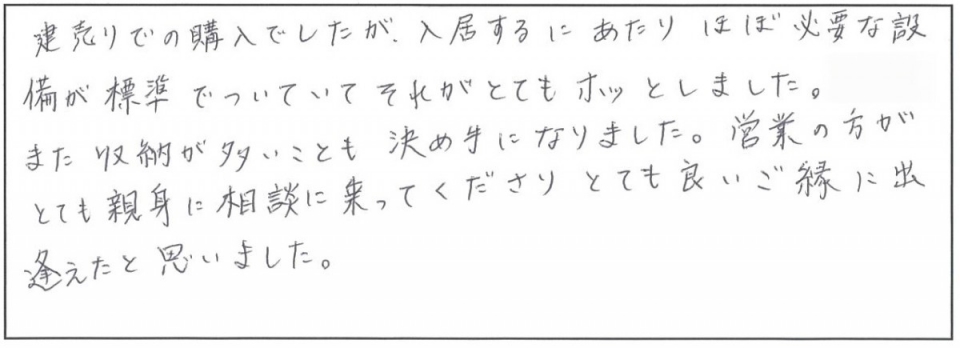 建売りでの購入でしたが、入居するにあたり ほぼ必要な設
備が標準でついていてそれがとてもホッとしました。
また収納が多いことも決め手になりました。営業の方が
とても親身に相談に乗ってくださりとても良いご縁に出
逢えたと思いました。